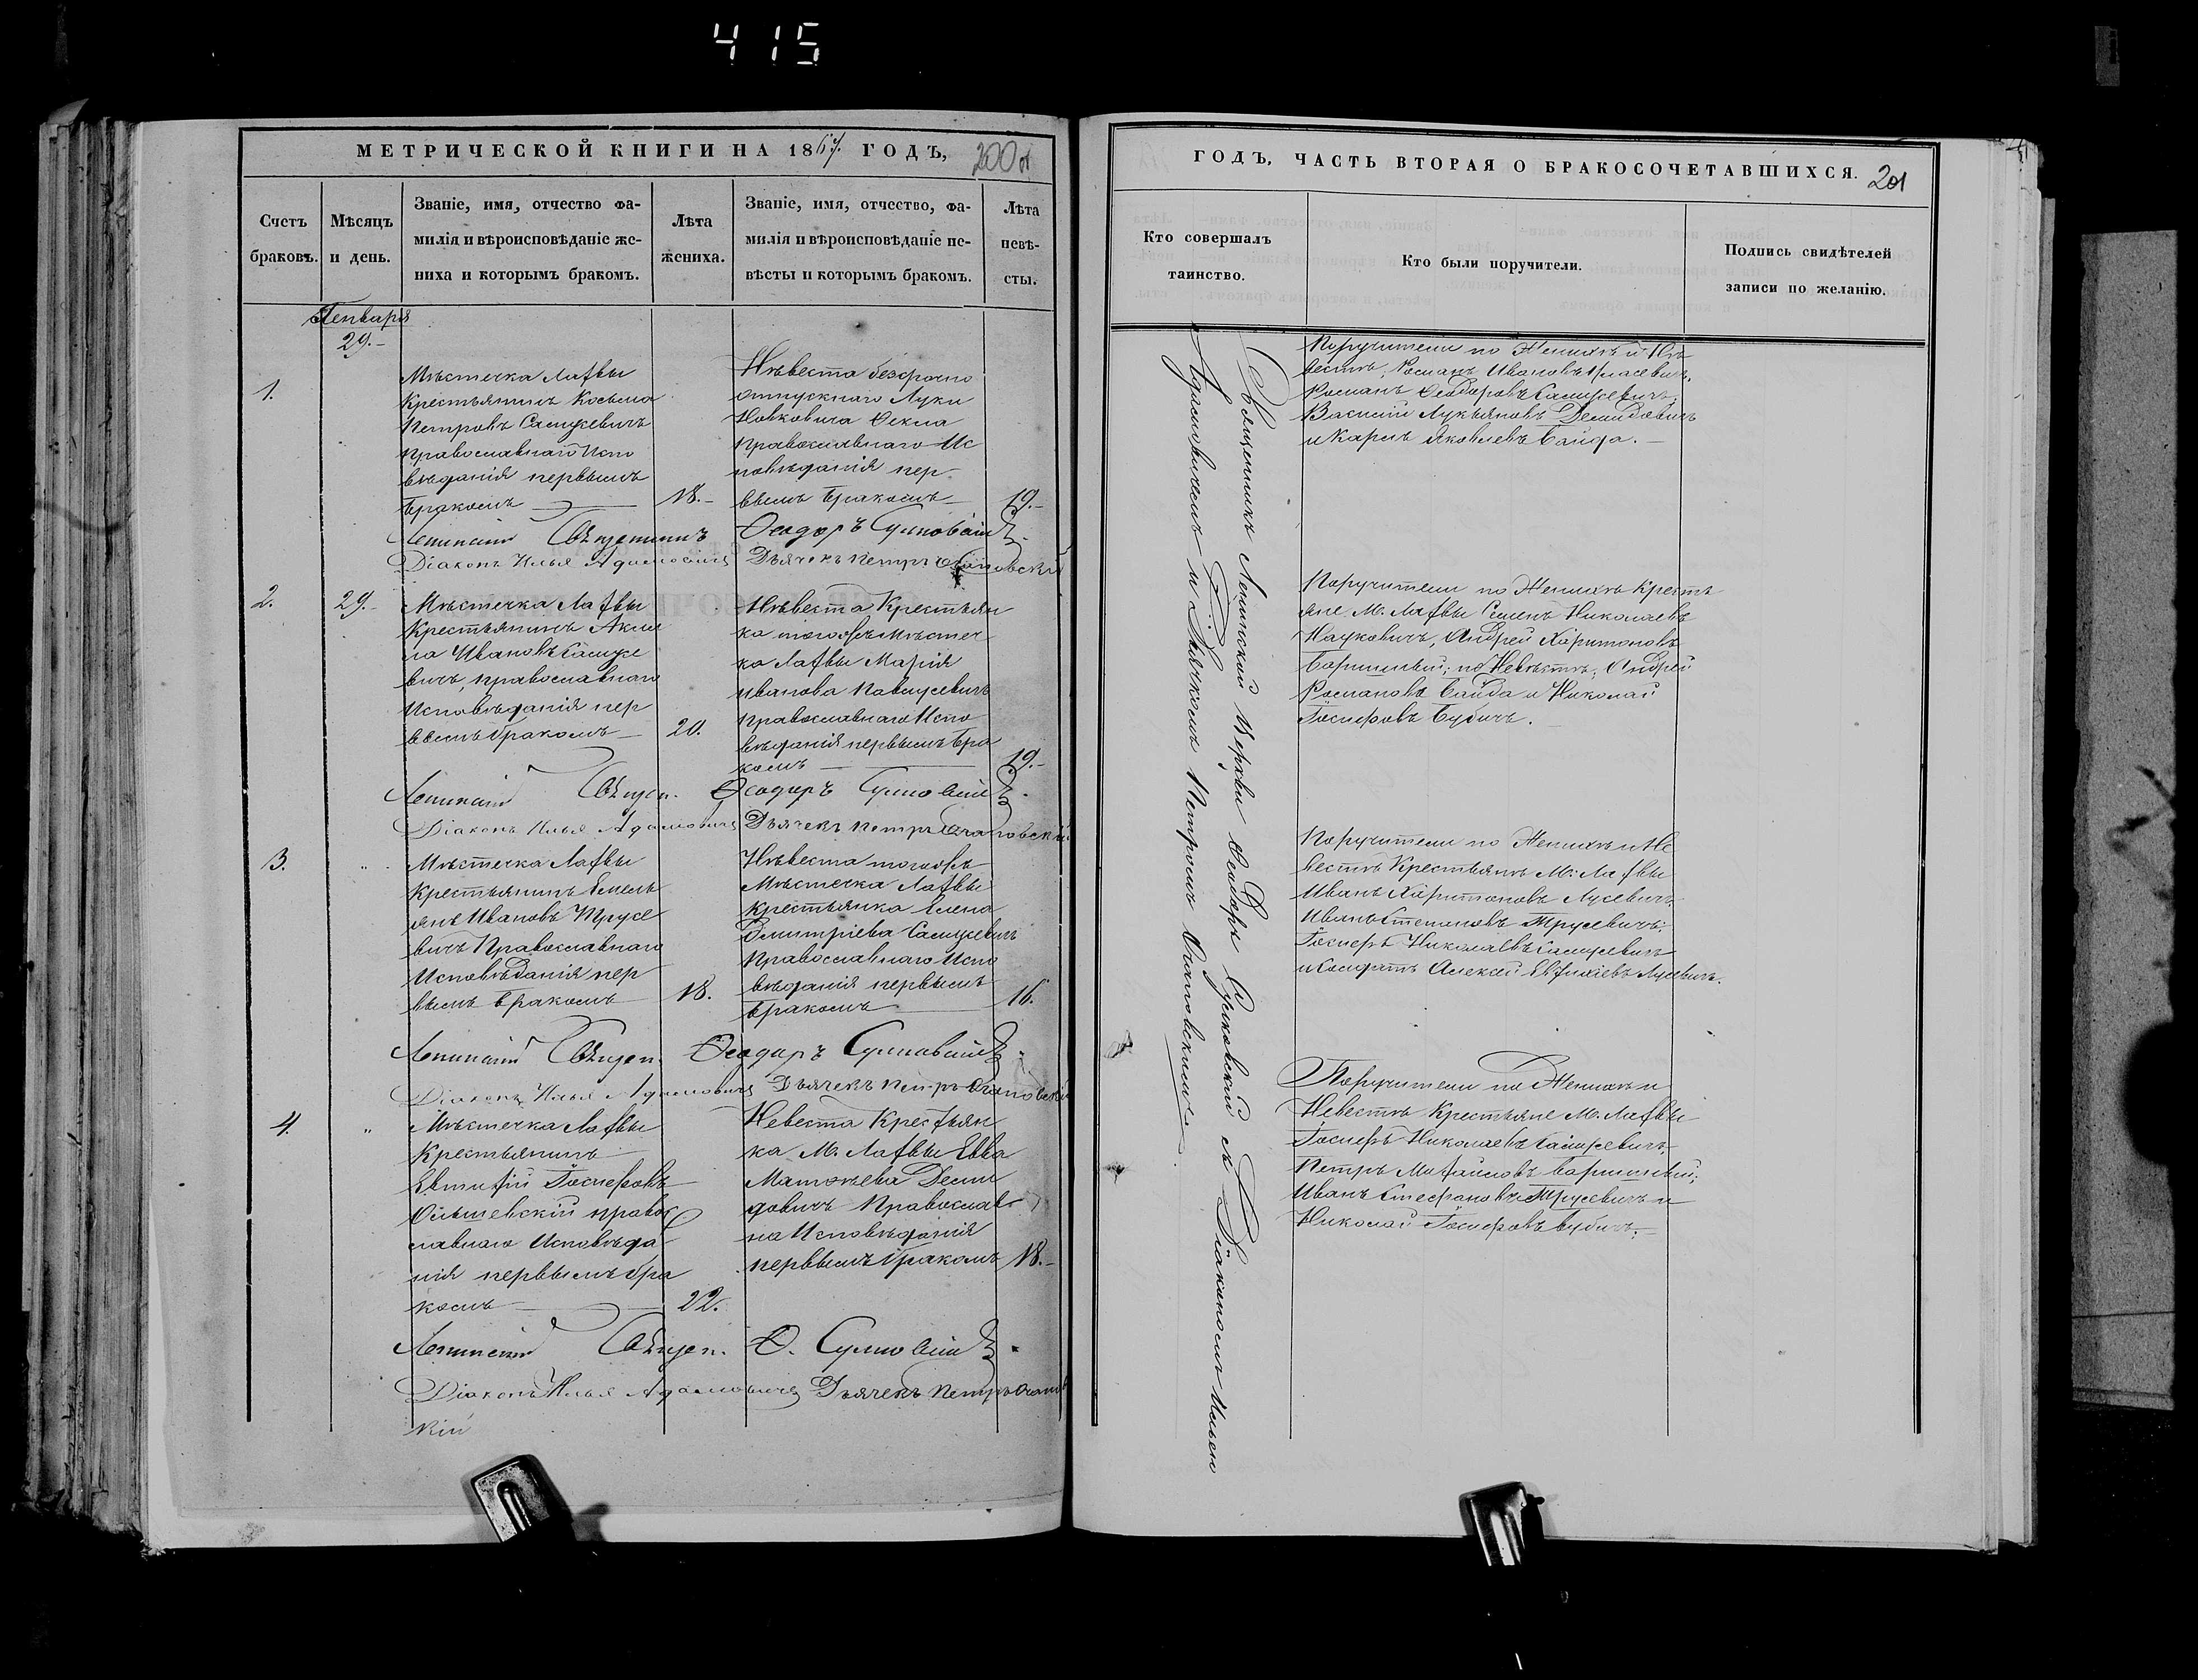 415
МЕТРИЧЕСКОЙ КНИГИ НА 1867. ГОДЪ,
200 об
Счетъ браковъ.
Мѣсяцъ и день.
Званіе, имя, отчество фа-
милія и вѣроисповѣданіе же-
ниха и которымъ бракомъ.
Лѣта
жениха.
Званіе, имя, отчество, фа-
милія и вѣроисповѣданіе не-
вѣсты и которымъ бракомъ.
Лѣта
невѣ-
сты.
Генваря
29.-
1.
Мѣстечка Лахвы
Крестьянинъ Косьма
Петровъ Самусевичъ
православнаго Испо
вѣданія первымъ
бракомъ
18.-
Нѣвеста безсрочно
отпускнаго Луки
Новковича Фекла
православнаго Ис
повѣданія пер-
вымъ бракомъ
19.-
Ленинскій Священникъ Феодоръ Сулковскій
Діаконъ Илья Адамовичъ Дьячекъ Петръ
2.
29.-
Мѣстечка Лахвы
Крестьянинъ Аки
ла Ивановъ Самусе
вичъ, православнаго
Исповѣданія пер
вымъ бракомъ
20.
Нѣвеста Крестьян
ка тогожъ Мѣстеч
ка Лахвы Марія
Иванова
православнаго Испо
вѣданія первымъ бра
комъ
19.-
Ленинскій Священ. Феодоръ Сулковскій
Діаконъ Илья Адамовичъ Дьячекъ Петръ
3.
"
Мѣстечка Лахвы
Крестьянинъ Емель
янъ Ивановъ Трусе
вичъ Православнаго
Исповѣданія пер
вымъ бракомъ
18.
Нѣвеста тогожъ
Мѣстечка Лахвы
Крестьянка Елена
Димитріева Самусевичъ
Православнаго Испо
вѣданія первымъ
бракомъ
16.
Ленинскій Священ. Феодоръ Сулковскій
Діаконъ Илья Адамовичъ Дьячекъ Петръ
4.
"
Мѣстечка Лахвы
Крестьянинъ
Евтихій Іосифовъ
Ольшевскій право
славнаго Исповѣда
нія первымъ бра
комъ
22.
Невеста Крестьян
ка М. Лахвы Евва
Матвѣева Деми
довичъ Православ
на Исповѣданія
первымъ бракомъ
18.-
Ленинскій Священ. Ф. Сулковскій
Діаконъ Илья Адамовичъ Дьячекъ Петръ
кій
ГОДЪ, ЧАСТЬ ВТОРАЯ О БРАКОСОЧЕТАВШИХСЯ.
201
Кто совершалъ
таинство.
Кто были поручители.
Подпись свидѣтелей
записи по желанію.
Священникъ Ленинской Церкви Феодоръ Сулковскій съ Діакономъ Ильею
Адамовичемъ и Дьячкомъ Петромъ
Поручители по Женихѣ и Не
вестѣ, Романъ Ивановъ
Романъ Феодоровъ Самусевичъ,
Василій Лукьяновъ Демидовичъ
и Карпъ Яковлевъ Байда.
Поручители по Женихѣ Кресть
яне М. Лахвы Семенъ Николаевъ
Науковичъ, Андрей Харитоновъ
по Невѣстѣ: Андрей
Романовъ Байда и Николай
Іосифовъ Бубичъ.
Поручители по Женихѣ и Не
вестѣ Крестьяне М. Лахвы
Иванъ Харитоновъ Лусевичъ,
Иванъ Степановъ Трусевичъ,
Іосифъ Николаевъ Самусевичъ
и Солдатъ Алексѣй Евфиміевъ Лусевичъ.
Поручители по Женихѣ и
Невестѣ Крестьяне М. Лахвы
Іосифъ Николаевъ Самусевичъ,
Петръ Михайловъ
Иванъ Стефановъ Трусевичъ и
Николай Іосифовъ Бубичъ.